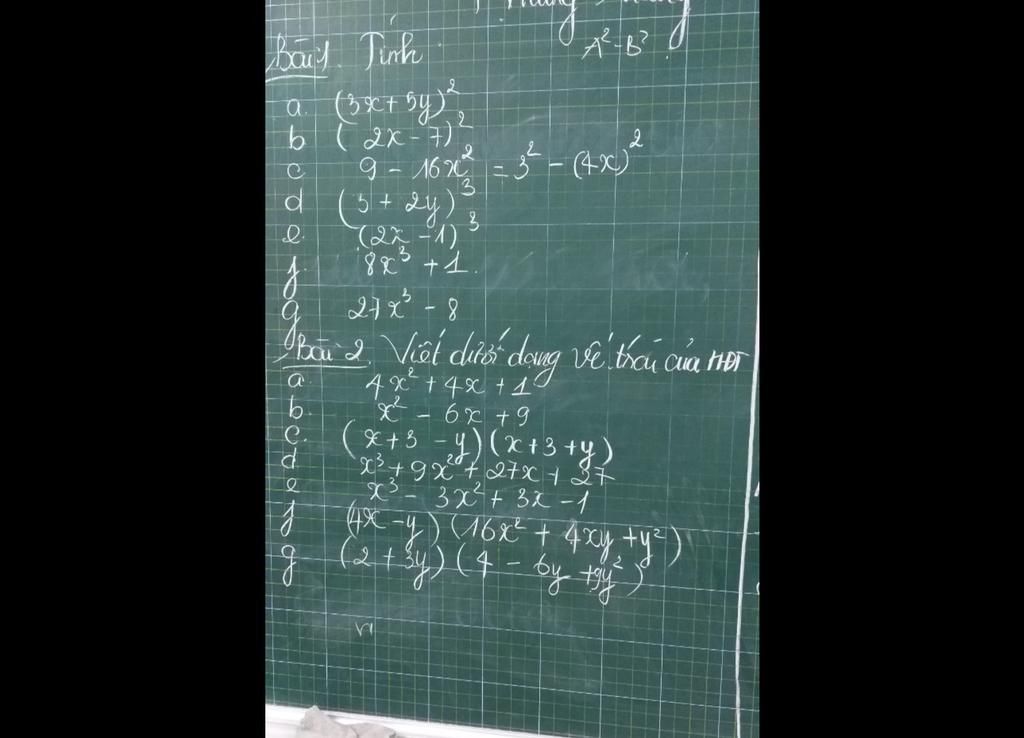 A² - B²
Bài 1. Tính
a. (3x + 5y)²
b (2x - 7)²
c 9 - 16x² = 3² - (4x)²
d (3 + 2y)³
e. (2x - 1)³
f. 8x³ + 1.
g 27x³ - 8
Bài 2. Viết dưới dạng vế trái của HĐT
a. 4x² + 4x + 1
b. x² - 6x + 9
c. (x + 3 - y)(x + 3 + y)
d. x³ + 9x² + 27x + 27
e x³ - 3x² + 3x - 1
f (4x - y)(16x² + 4xy + y²)
g (2 + 3y)(4 - 6y + 9y²)